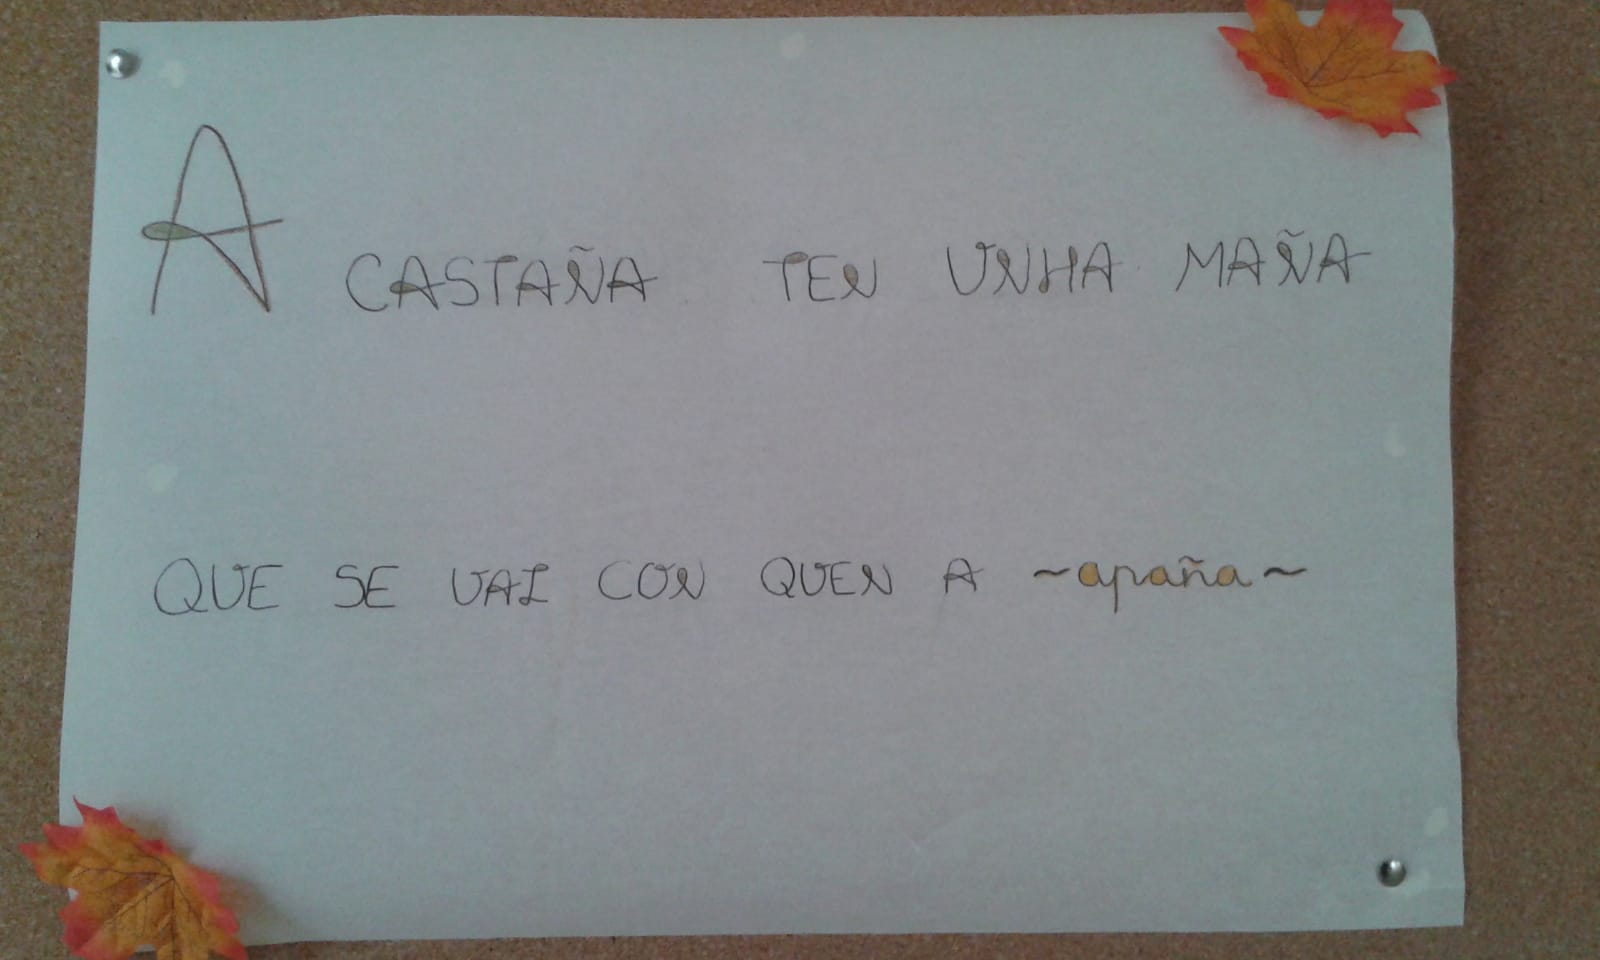 A CASTAÑA TEN UNHA MAÑA
QUE SE VAI CON QUEN A ~apaña~